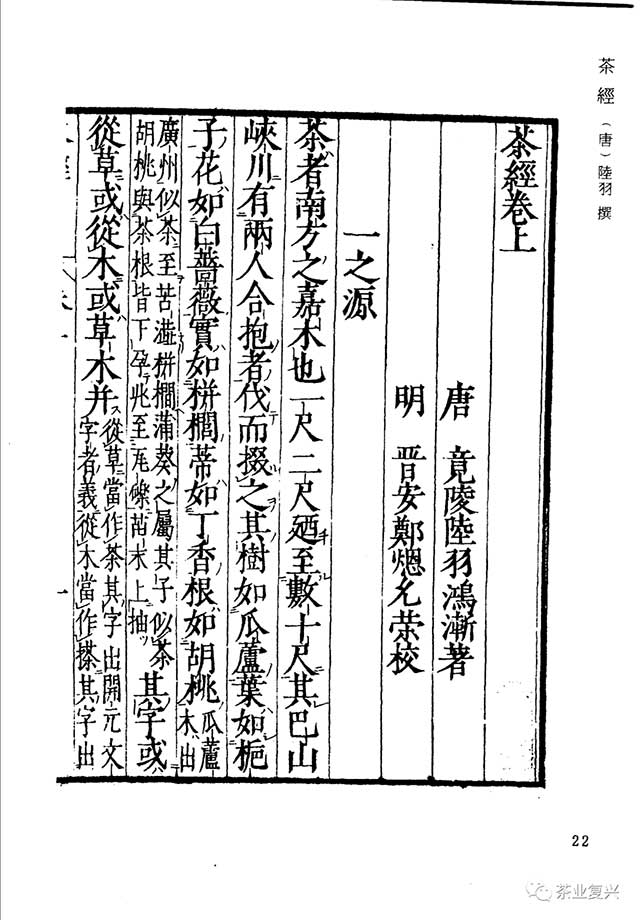 茶經（唐）陸羽 撰
茶經卷上
唐 竟陵陸羽鴻漸著
明 晋安鄭熜允荣校
一之源
茶者南方之嘉木也一尺二尺廼至數十尺其巴山
峽川有兩人合抱者伐而掇之其樹如瓜蘆葉如梔
子花如白薔薇實如栟櫚蒂如丁香根如胡桃瓜蘆木出
廣州似茶至苦澁栟櫚蒲葵之屬其子似茶
胡桃與茶根皆下孕兆至瓦礫苗木上抽其字或
從草或從木或草木并從草當作茶其字出開元文
字者義從木當作搽其字出
一
22
茶业复兴